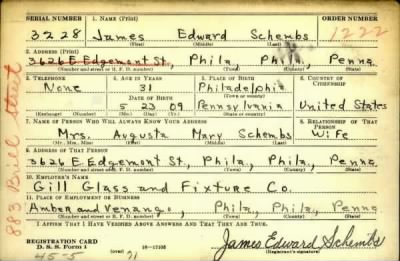 SERIAL NUMBER 1. NAME (Print) ORDER NUMBER
3228 James Edward Schembs 1222
(First) (Middle) (Last)
2. ADDRESS (Print)
3626 E Edgemont St., Phila, Phila., Penna
(Number and street or R. F. D. number) (Town) (County) (State)
3. TELEPHONE 4. AGE IN YEARS 5. PLACE OF BIRTH 6. COUNTRY OF CITIZENSHIP
None 31 Philadelphia
DATE OF BIRTH (Town or county)
5 23 09 Pennsylvania United States
(Mo.) (Day) (Yr.) (State or country)
7. NAME OF PERSON WHO WILL ALWAYS KNOW YOUR ADDRESS 8. RELATIONSHIP OF THAT PERSON
Mrs. Augusta Mary Schembs Wife
(Mr., Mrs., Miss) (First) (Middle) (Last)
9. ADDRESS OF THAT PERSON
3626 E Edgemont St., Phila., Phila., Penna
(Number and street or R. F. D. number) (Town) (County) (State)
10. EMPLOYER'S NAME
Gill Glass and Fixture Co.
11. PLACE OF EMPLOYMENT OR BUSINESS
Amber and Venango, Phila, Phila., Penna
(Number and street or R. F. D. number) (Town) (County) (State)
I AFFIRM THAT I HAVE VERIFIED ABOVE ANSWERS AND THAT THEY ARE TRUE.
REGISTRATION CARD
D. S. S. Form 1 (over) 16-17105 James Edward Schembs
45-5 71 (Registrant's signature)
883 Street